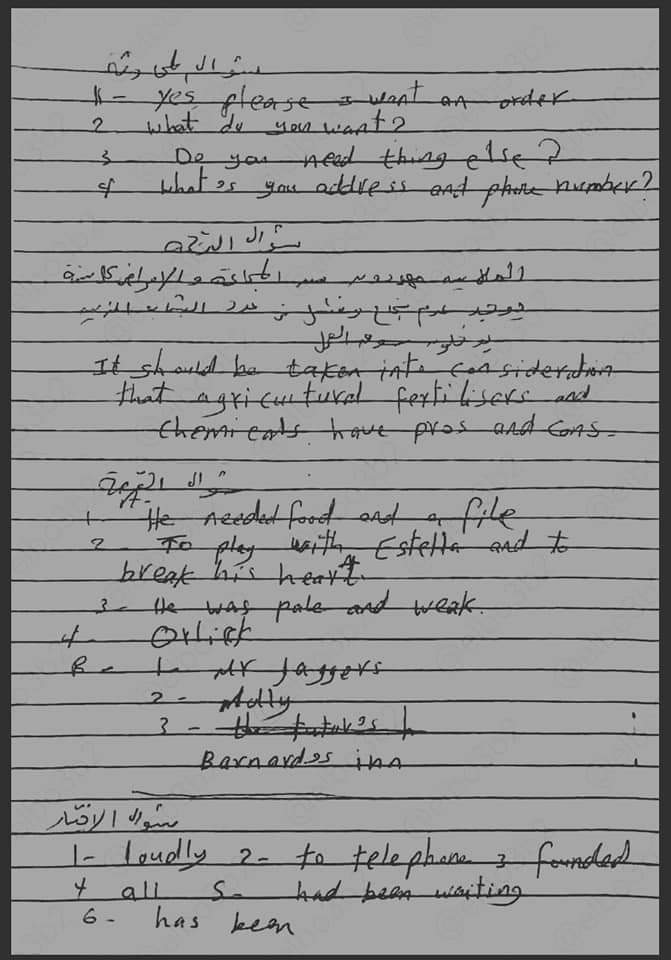 سؤال المحادثة
1 - yes, please I want an order
2 What do you want?
3 - Do you need thing else?
4 What's you address and phone number?
سؤال الترجمة
الملايين مهددون من المجاعة والامراض
يوجد عدم نجاح وفشل من عدد الشباب الذين
يدخلون سوق العمل
It should be taken into consideration
that agricultural fertilisers and
chemicals have pros and cons-
سؤال القصة
A-
1 - He needed food and a file
2 - To play with Estella and to
break his heart.
3 - He was pale and weak.
4 - Orlick
B - 1 - Mr Jaggers
2 - Molly
3 - the tutor's h
Barnard's inn
سؤال الاختيار
1- loudly 2- to telephone 3 founded
4 all 5- had been waiting
6 - has been